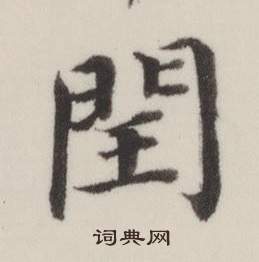 閏
词典网